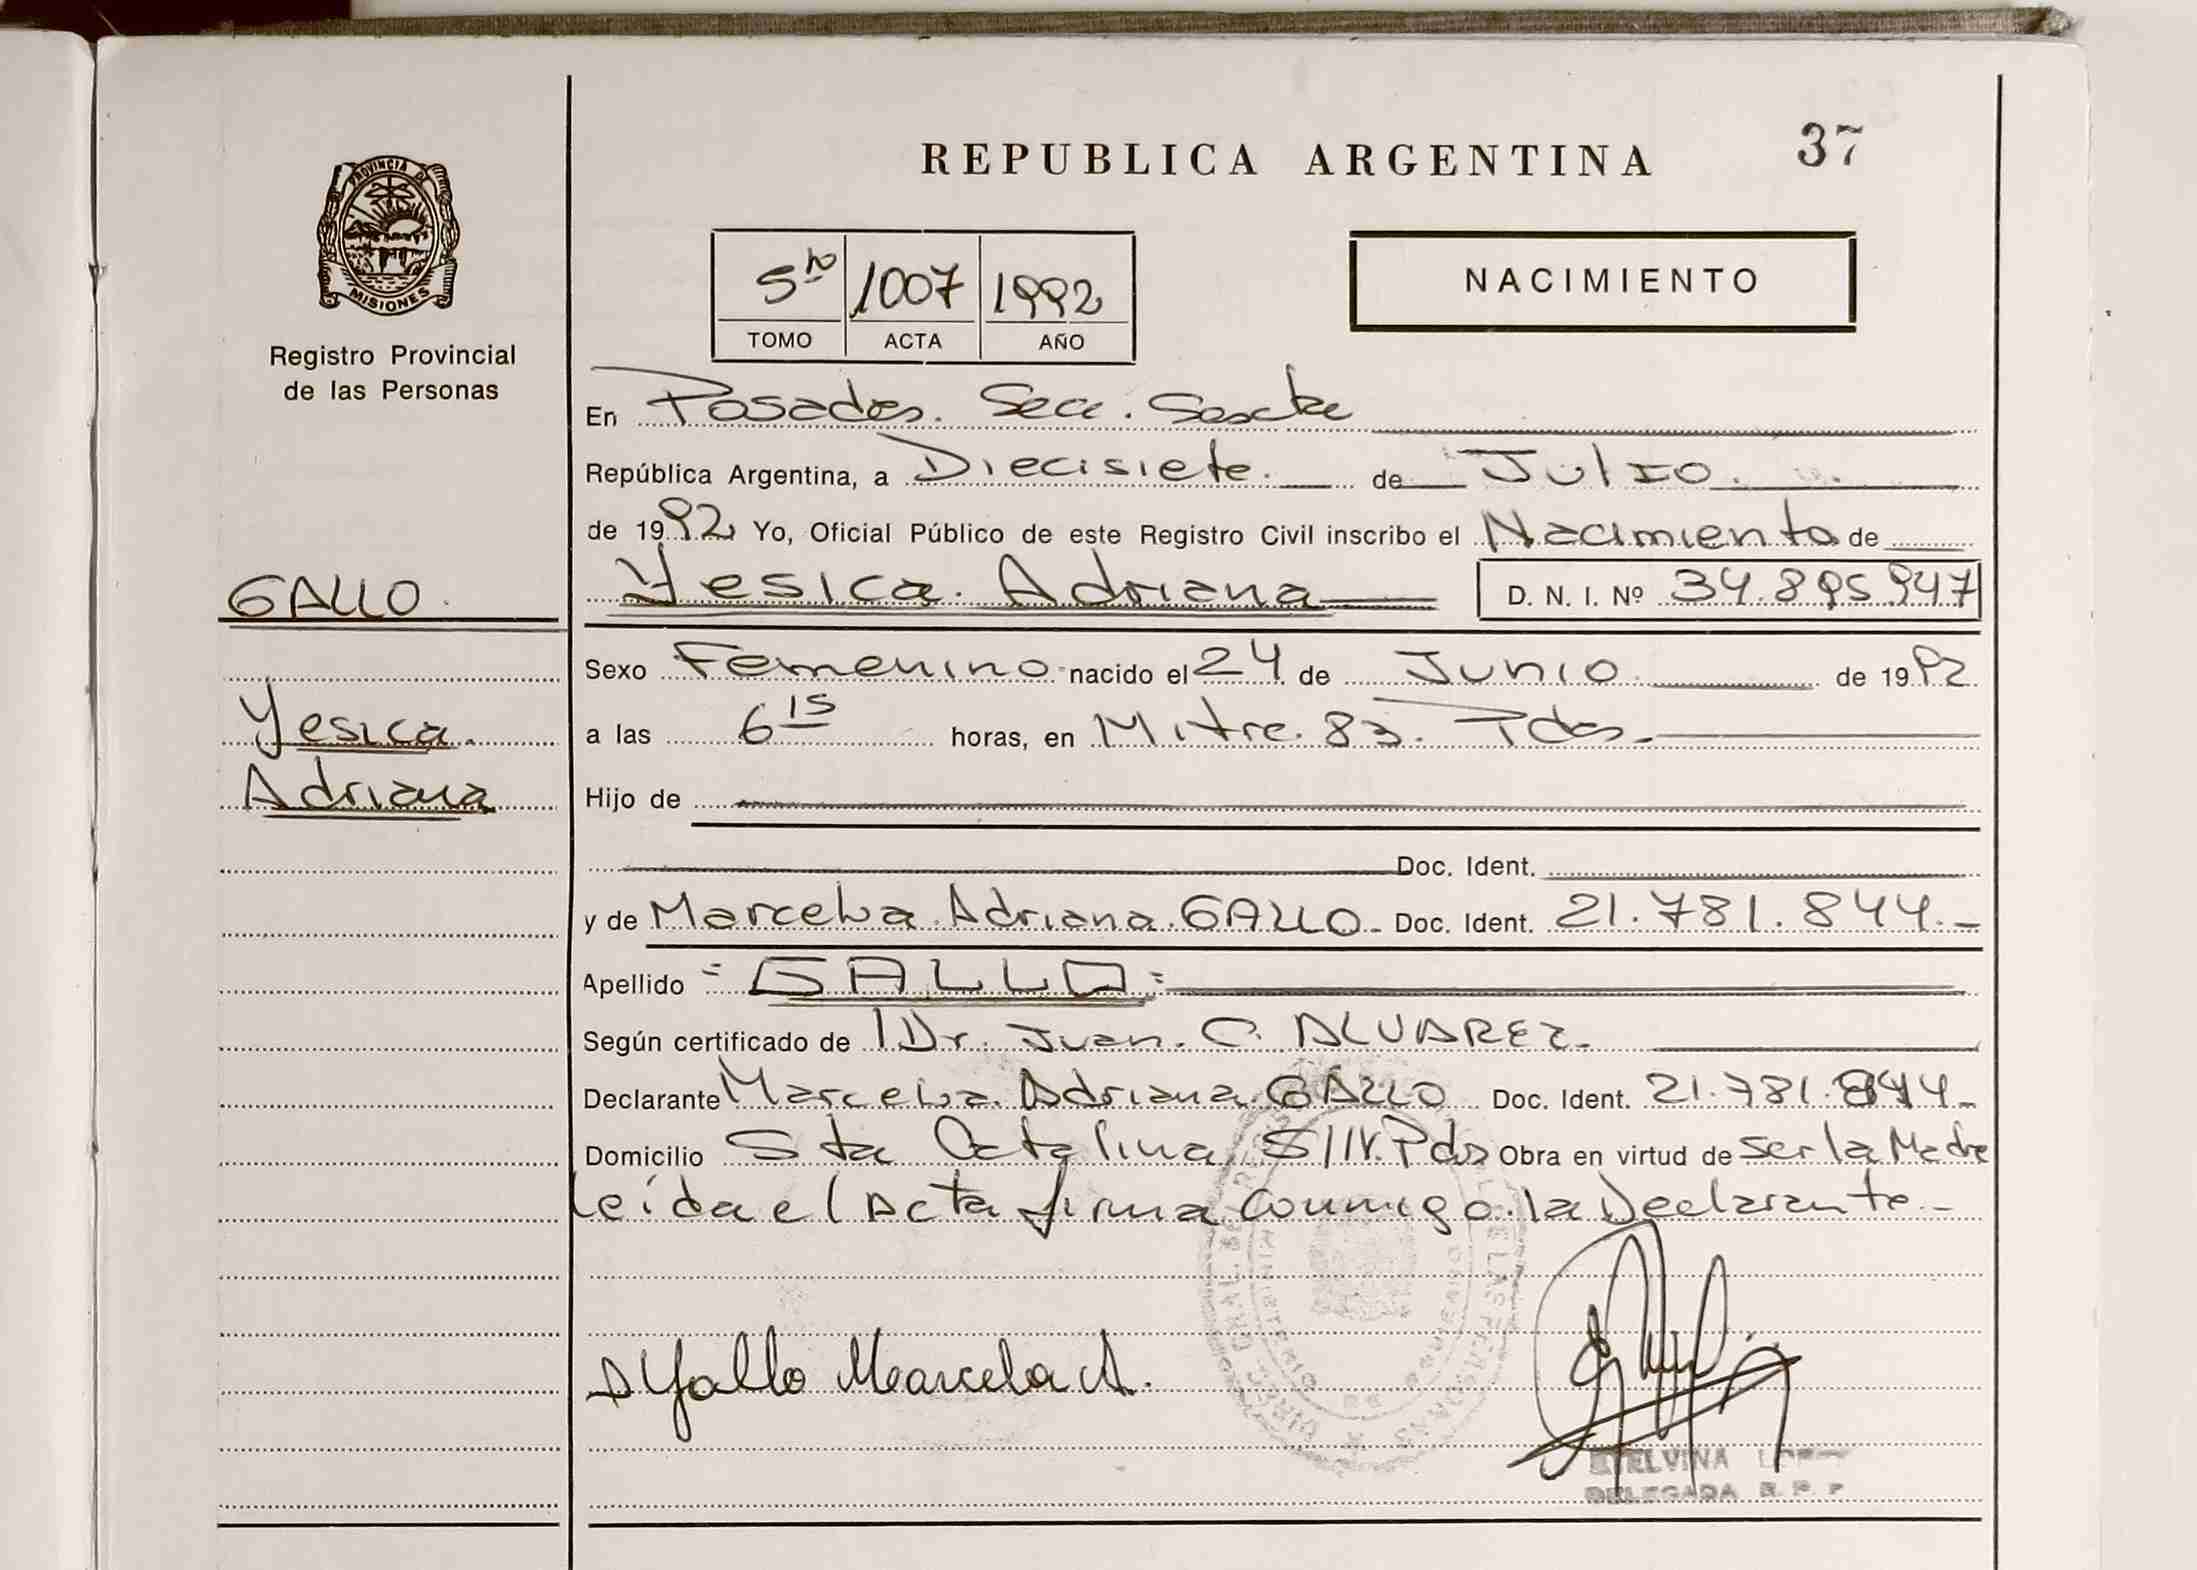 37
REPUBLICA ARGENTINA
PROVINCIA DE
MISIONES
Registro Provincial
de las Personas
NACIMIENTO
5to 1007 1992
TOMO ACTA AÑO
En Posadas. Secc. Sexta
República Argentina, a Diecisiete. de Julio.
de 1992 Yo, Oficial Público de este Registro Civil inscribo el Nacimiento de
GALLO.
Yesica. Adriana D. N. I. Nº 34.895.947
Sexo Femenino nacido el 24 de Junio de 1992
Yesica.
a las 6 15 horas, en Mitre. 83. Pdas.
Adriana
Hijo de
Doc. Ident.
y de Marcela. Adriana. GALLO. Doc. Ident. 21.781.844.-
Apellido =GALLO=
Según certificado de Dr. Juan. C. ALVAREZ.
Declarante Marcela. Adriana. GALLO Doc. Ident. 21.781.844.-
Domicilio Sta Catalina, S/N. Pdas Obra en virtud de ser la Madre
Leída el Acta firma conmigo la Declarante.-
Gallo Marcela A.
DE LAS PERSONAS
MINISTERIO DE GOBIERNO
ETELVINA
DELEGADA R. P. P